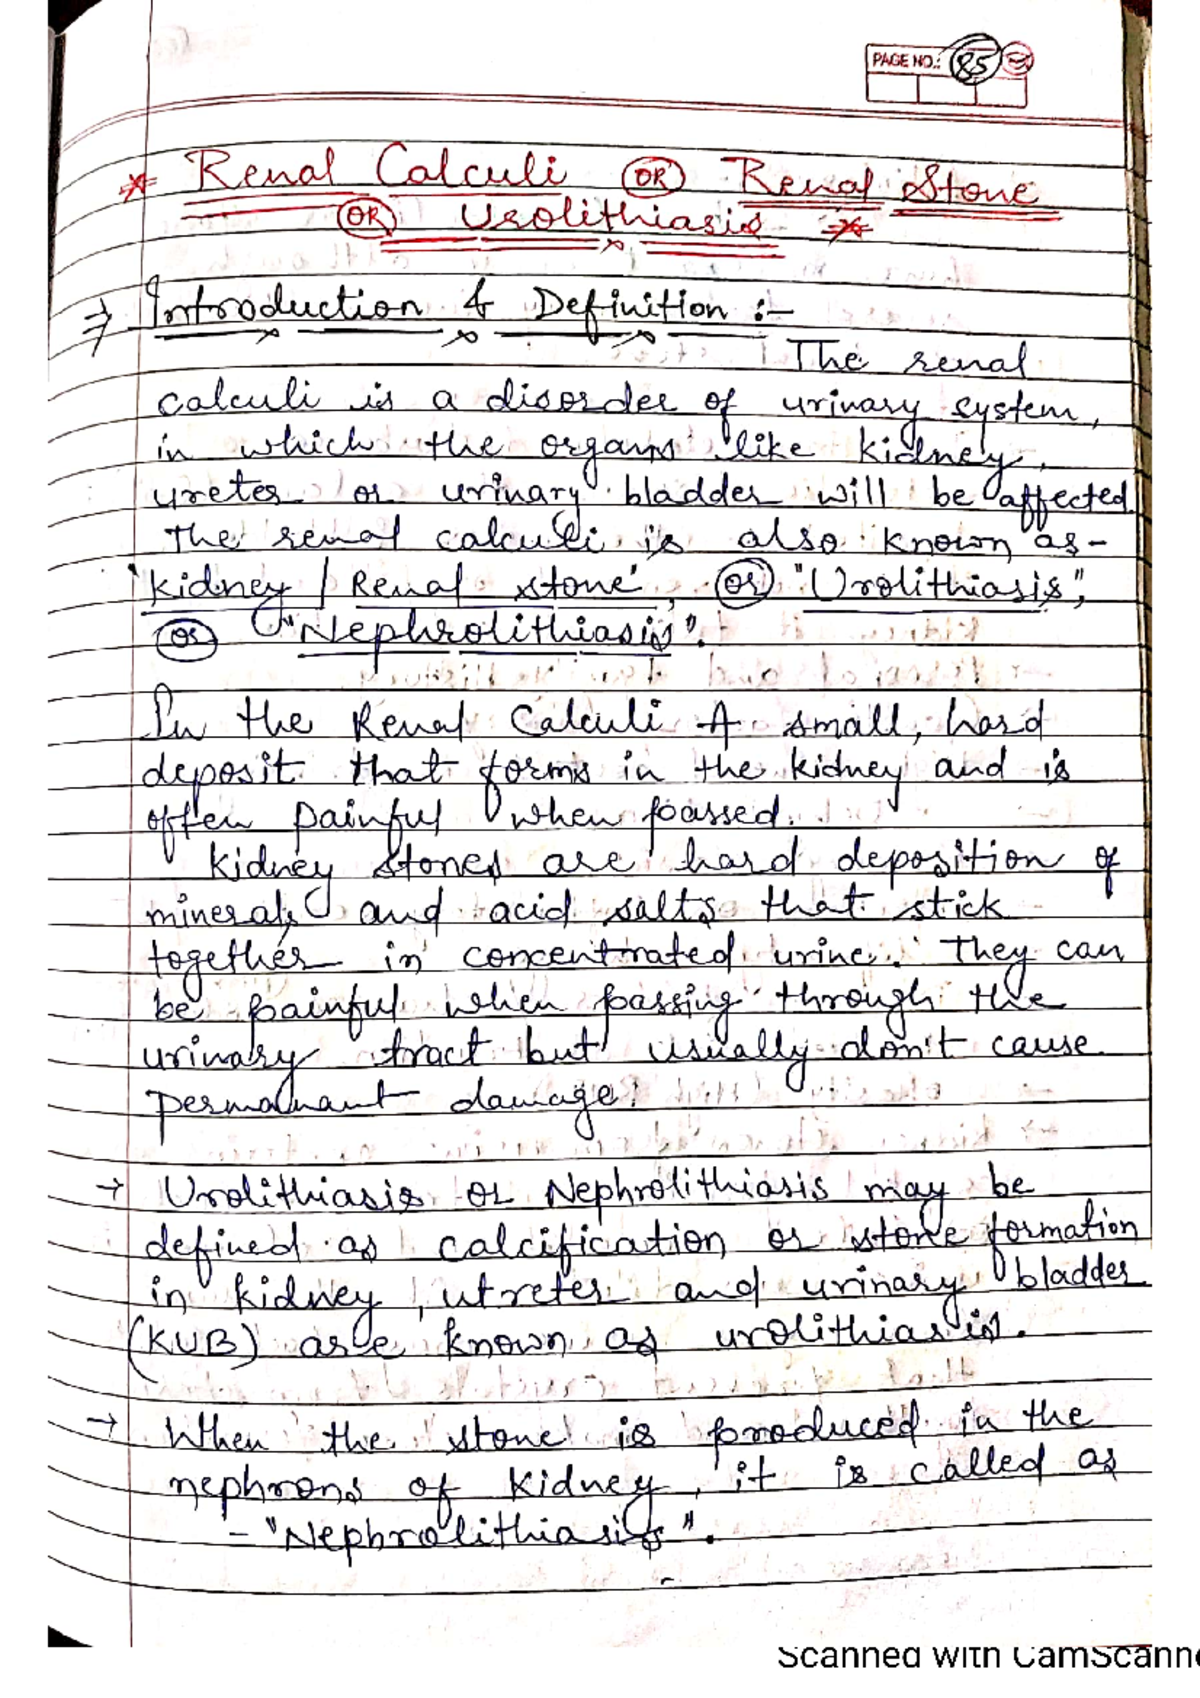 PAGE NO.: 85
* Renal Calculi OR Renal Stone
OR Urolithiasis *
⇒ Introduction & Definition :-
The renal
calculi is a disorder of urinary system,
in which the organs like kidney,
ureter or urinary bladder will be affected.
The renal calculi is also known as-
'kidney / Renal stone', or "Urolithiasis",
or "Nephrolithiasis".
In the Renal Calculi A small, hard
deposit that forms in the kidney and is
often painful when passed.
Kidney stones are hard deposition of
minerals and acid salts that stick
together in concentrated urine. They can
be painful when passing through the
urinary tract but usually don't cause
permanant damage.
→ Urolithiasis or Nephrolithiasis may be
defined as calcification or stone formation
in kidney, utreter and urinary bladder
(KUB) are known as urolithiasis.
→ When the stone is produced in the
nephrons of kidney, it is called as
- "Nephrolithiasis".
Scanned with CamScanne